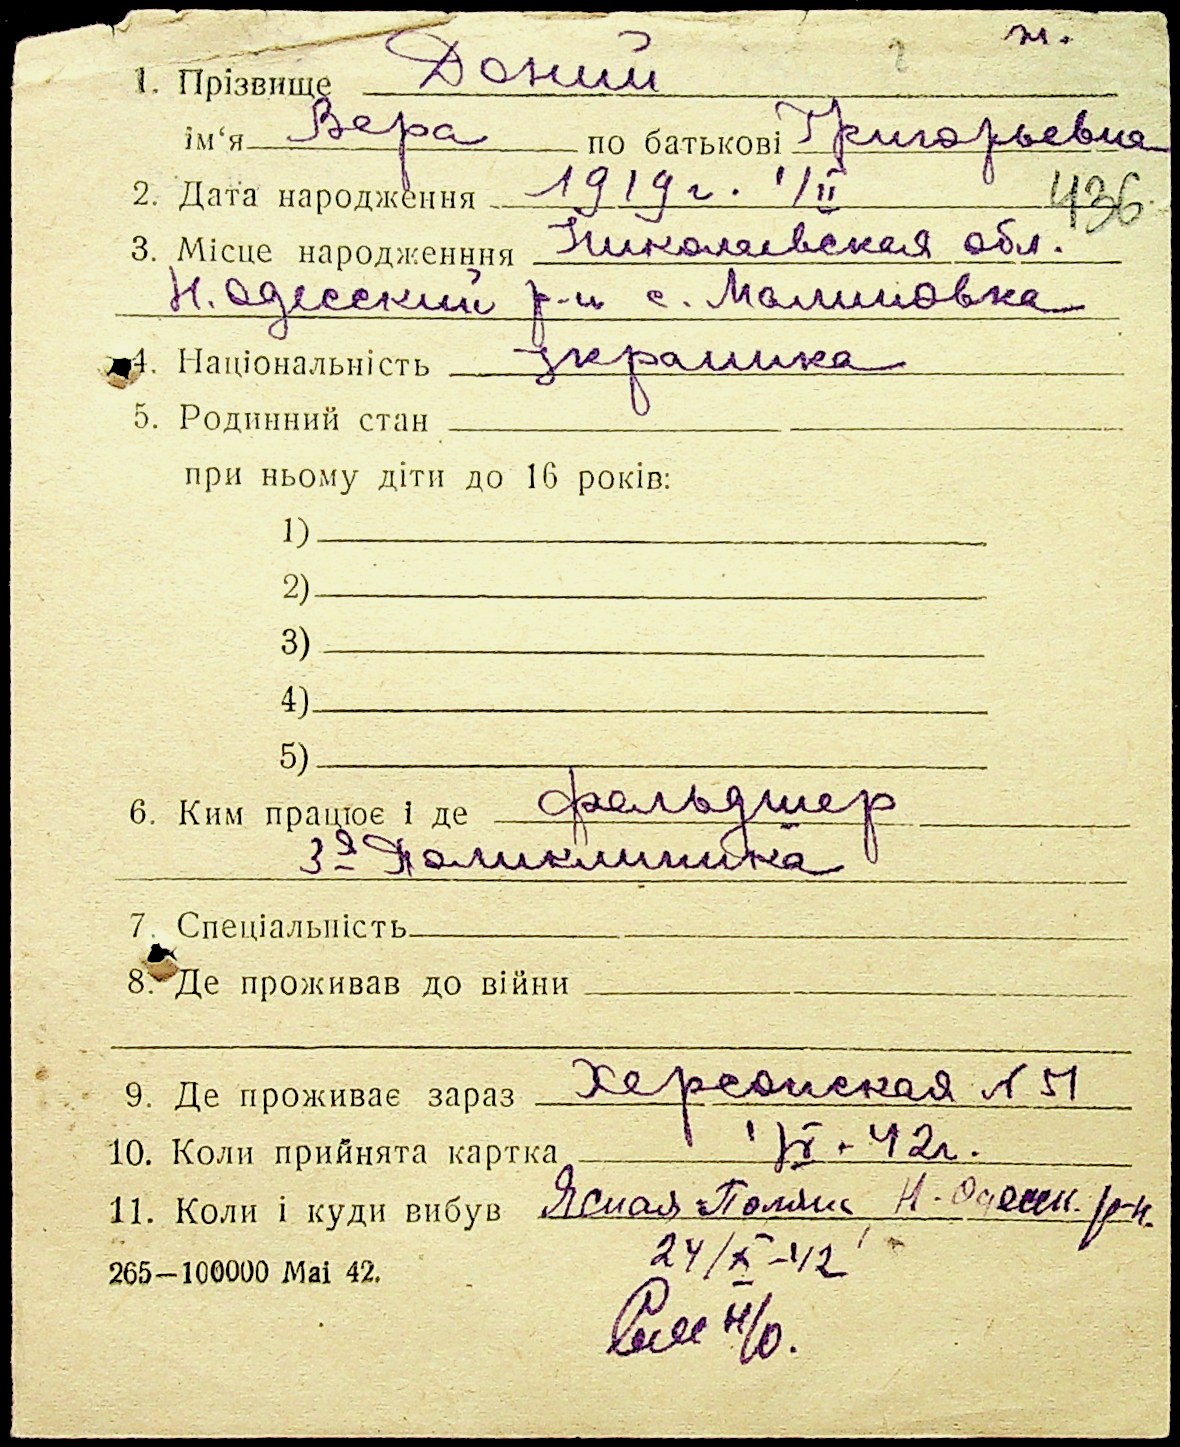 ж.
1. Прізвище Доний
ім'я Вера по батькові Григорьевна
2. Дата народження 1919 г. 1/II
436
3. Місце народженння Николаевская обл.
Н. Одесский р-н с. Малиновка
4. Національність украинка
5. Родинний стан
при ньому діти до 16 років:
1)
2)
3)
4)
5)
6. Ким працює і де фельдшер
3я Поликлиника
7. Спеціальність
8. Де проживав до війни
9. Де проживає зараз Херсонская № 51
10. Коли прийнята картка 42 г.
11. Коли і куди вибув Ясная Поляна Н-Одесск. р-н.
24/X-42
265—100000 Mai 42.